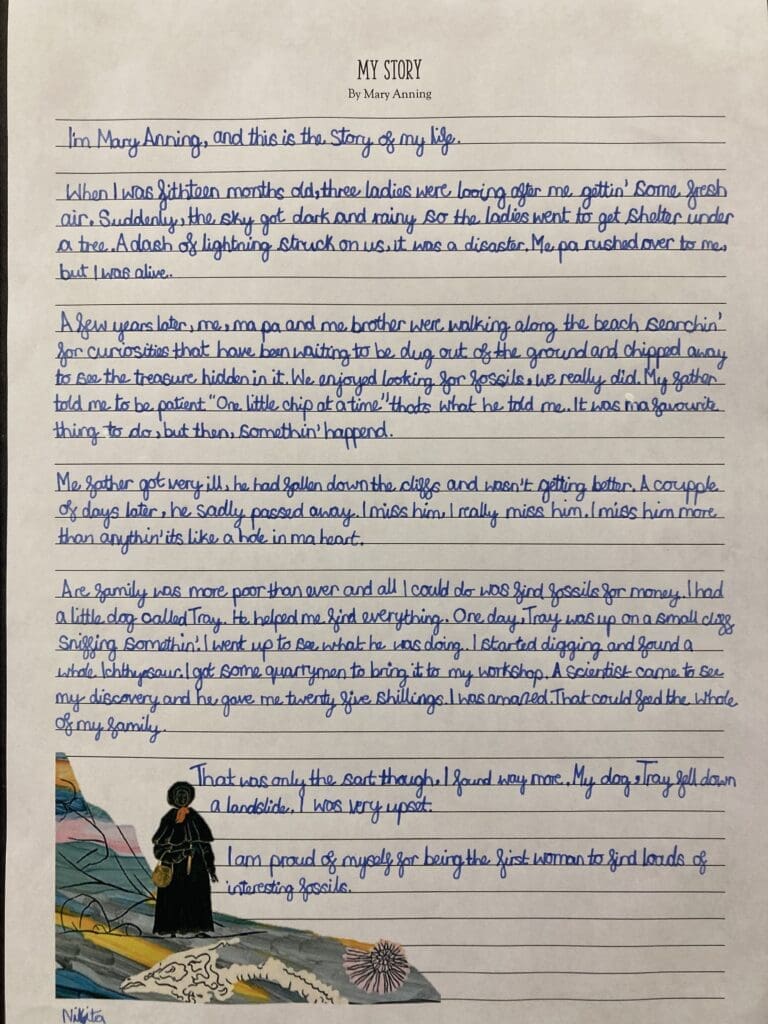 MY STORY
By Mary Anning
I'm Mary Anning, and this is the Story of my life.
When I was fithteen months old, three ladies were looing after me gettin' some fresh
air. Suddenly, the sky got dark and rainy so the ladies went to get shelter under
a tree. A dash of lightning struck on us, it was a disaster. Me pa rushed over to me,
but I was alive..
A few years later, me, ma pa and me brother were walking along the beach searchin'
for curiosities that have been waiting to be dug out of the ground and chipped away
to see the treasure hidden in it. We enjoyed looking for fossils, we really did. My father
told me to be patient "One little chip at a time" thats what he told me. It was ma favourite
thing to do, but then, somethin' happend.
Me father got very ill, he had fallen down the cliffs and wasn't getting better. A coupple
of days later, he sadly passed away. I miss him, I really miss him. I miss him more
than anythin' its like a hole in ma heart.
Are family was more poor than ever and all I could do was find fossils for money. I had
a little dog called Tray. He helped me find everything. One day, Tray was up on a small cliff
sniffing somethin'. I went up to see what he was doing. I started digging and found a
whole Ichthyosaur. I got some quarrymen to bring it to my workshop. A scientist came to see
my discovery and he gave me twenty five shillings. I was amazed. That could feed the whole
of my family.
That was only the sart though. I found way more. My dog, Tray fell down
a landslide. I was very upset.
I am proud of myself for being the first woman to find loads of
interesting fossils.
Nikita